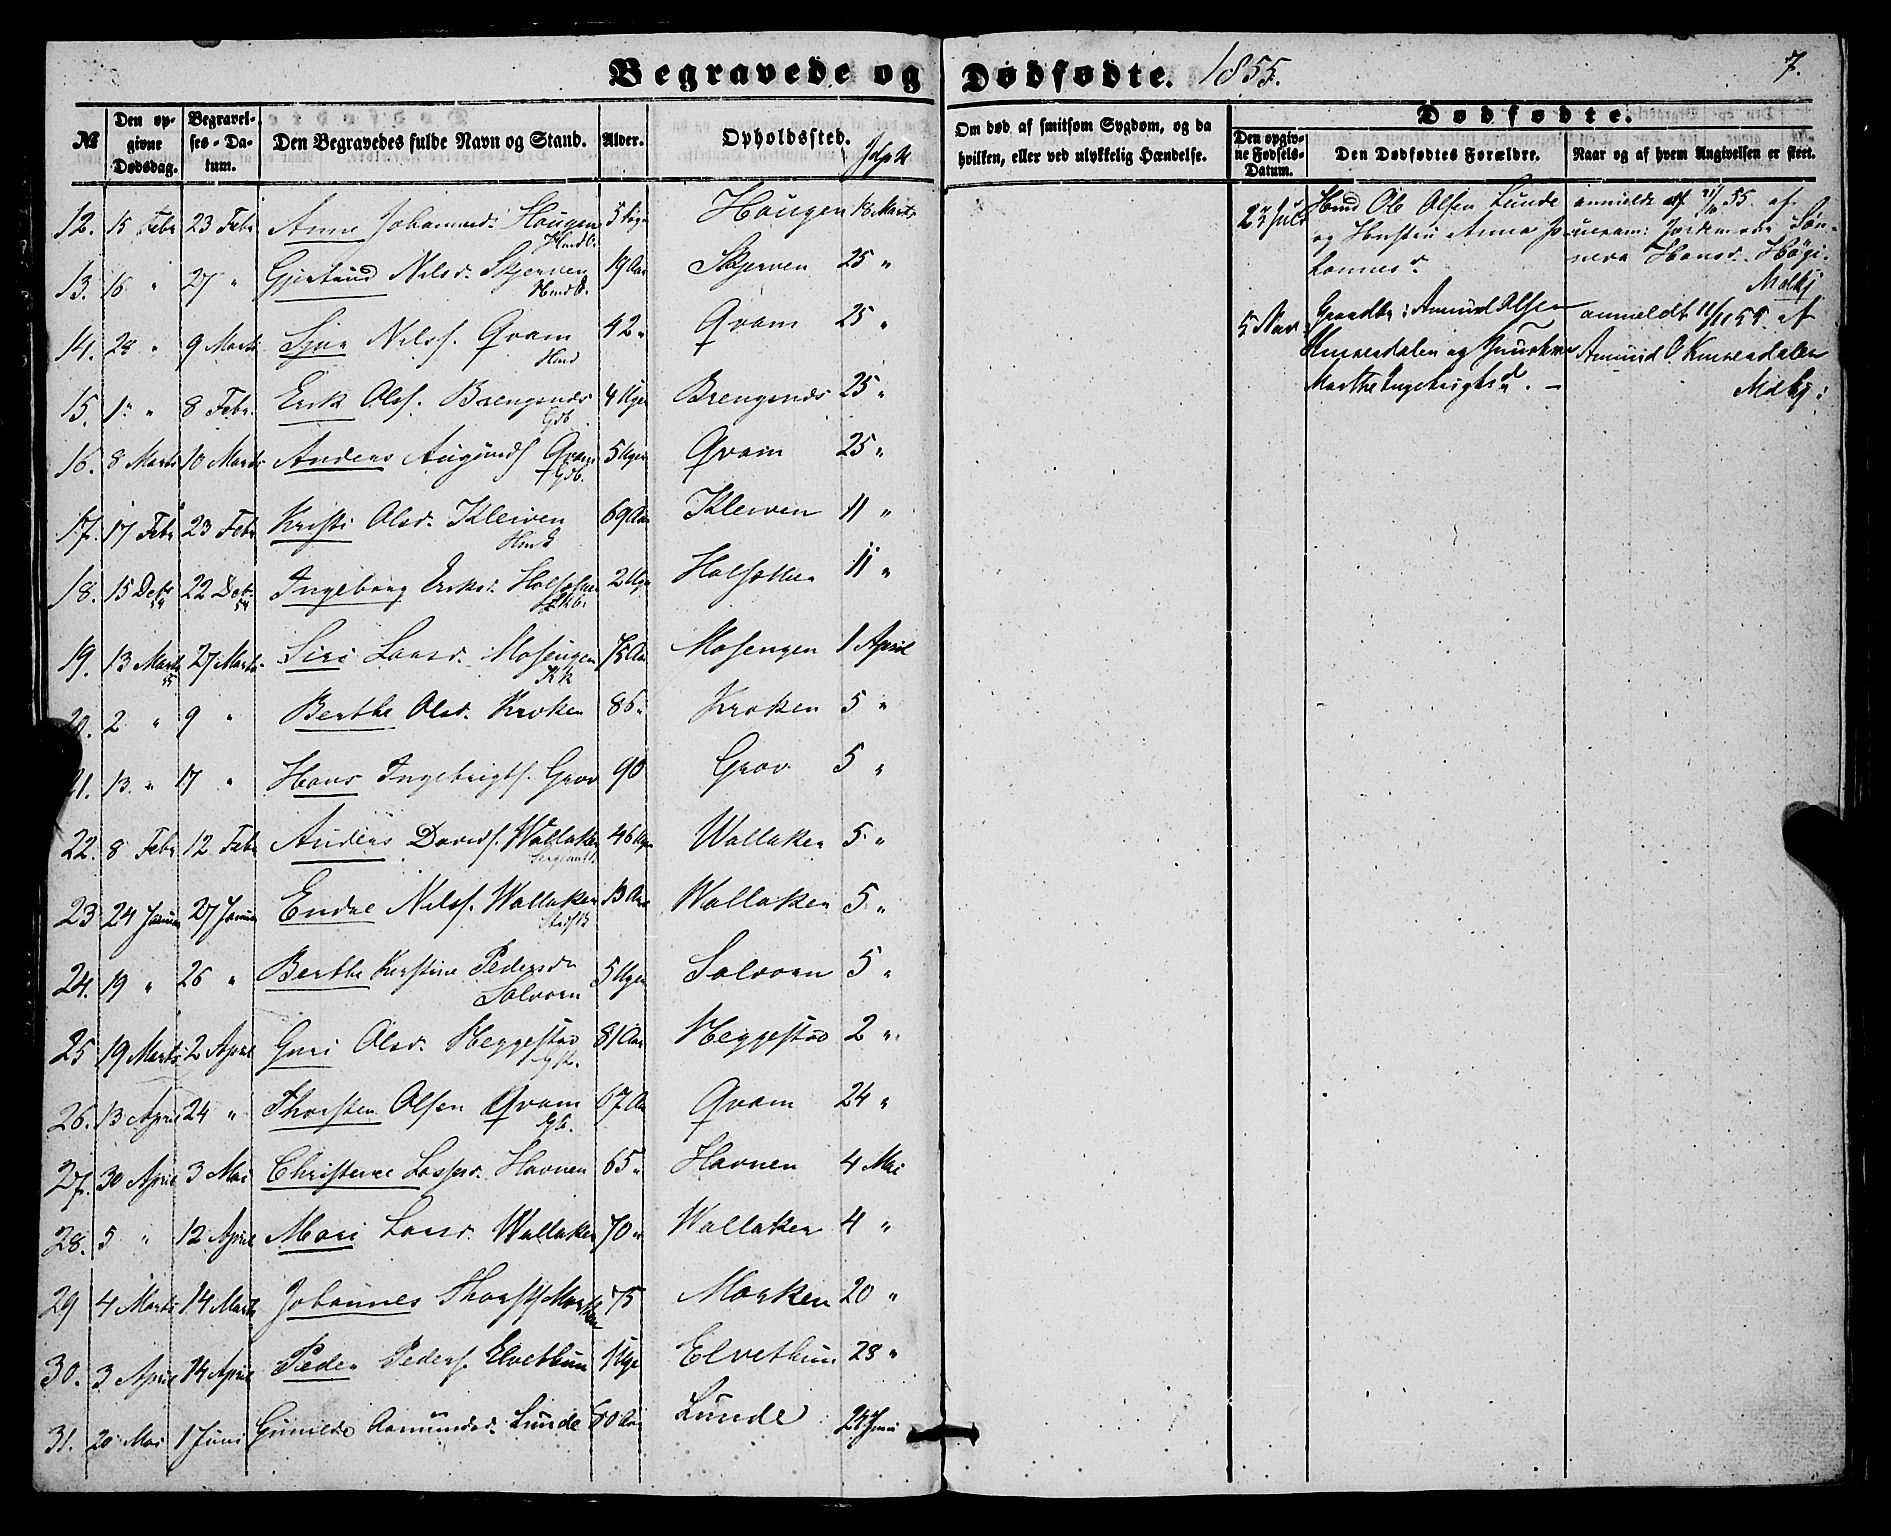 Begravede og Dødfødte. 1855. 7.
№ Den opgivne Dødsdag. Begravelses-Datum. Den Begravedes fulde Navn og Stand. Alder. Opholdssted. Jdpk
Om død af smitsom Sygdom, og da hvilken, eller ved ulykkelig Hændelse.
Dødfødte.
Den opgivne Fødsels-Datum. Den Dødfødtes Forældre. Naar og af hvem Angivelsen er skeet.
12. 15 Febr 23 Febr Anne Johannesd. Hougen 5 Hougen 18 Marts
13. 16 " 27 " Gjertrud Nilsd. Skjerven 19 Aar Skjerven 25 "
14. 28 " 9 Marts Sjur Nilss. Qvam Hmd 42 " Qvam 25 "
15. 1 " 8 Febr. Erik Olss. Brengsnæs Gdb. 4 Uger Brengsnæs 25 "
16. 8 Marts 10 Marts Anders Augunds Qvam Gdb. 5 Uger Qvam 25 "
17. 17 Febr 23 Febr Kristi Olsd. Kleiven 69 Aar Kleiven 11 "
18. 15 Debr 54 22 Debr. 54 Ingeborg Eriksd. 2 Uger 11 "
19. 13 Marts 55 27 Marts Siri Larsd. Mosengen 75 Aar Mosengen 1 April
20. 2 " 9 " Berthe Olsd. Kroken 86 " Kroken 5 "
21. 13 " 17 " Hans Ingebrigts. Grov 90 Grov 5 "
22. 8 Febr 12 Febr Anders Davids. Wallaker 46 Wallaker 5 "
23 24 Januar 27 Januar Endre Nilss. Wallaker 13 Aar Wallaker 5 "
24. 19 " 26 " Berthe Kirstine Pedersdr
Solvorn 5 Uger Solvorn 5 "
25 19 Marts 2 April Guri Olsd. Heggestad 81 Aar Heggestad 2 "
26. 13 April 24 " Thorsten Olsen Qvam 67 Aar Qvam 24 "
27. 30 April 3 Mai Christense Havnen 65 " Havnen 4 Mai
28. 5 " 12 April Mari Larsd. Wallaker 70 " Wallaker 4 "
29 4 Marts 14 Marts Johannes Thorsts Morken 75 Morken 20 "
30. 3 April 14 April Peder Peders. Elvethun 1 Uge Elvethun 28 "
31. 20 Mai 1 Juni Gunilde Aamundsd. Lunde 80 Aar Lunde Juni
23 Juli Hmd Ole Olsen Lunde
og Hustru Anna Johannesd.
anmeldt af
Jordemoder
Hansd.
5 Nov. Gaardbr: Amund Olsen
Kinserdalen og Hustru
Marthe Ingebrigtsd. –
anmeldt 11/11 55 af
Amund O. Kinserdalen